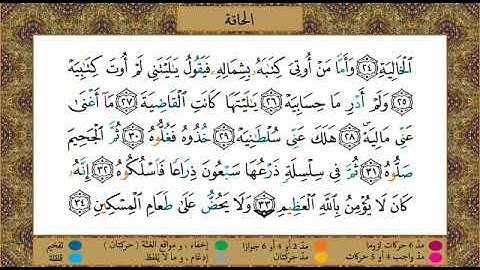 الحاقة
ٱلْخَالِيَةِ ٢٤ وَأَمَّا مَنْ أُوتِىَ كِتَٰبَهُۥ بِشِمَالِهِۦ فَيَقُولُ يَٰلَيْتَنِى لَمْ أُوتَ كِتَٰبِيَهْ
٢٥ وَلَمْ أَدْرِ مَا حِسَابِيَهْ ٢٦ يَٰلَيْتَهَا كَانَتِ ٱلْقَاضِيَةَ ٢٧ مَآ أَغْنَىٰ
عَنِّى مَالِيَهْ ۜ ٢٨ هَلَكَ عَنِّى سُلْطَٰنِيَهْ ٢٩ خُذُوهُ فَغُلُّوهُ ٣٠ ثُمَّ ٱلْجَحِيمَ
صَلُّوهُ ٣١ ثُمَّ فِى سِلْسِلَةٍ ذَرْعُهَا سَبْعُونَ ذِرَاعًا فَٱسْلُكُوهُ ٣٢ إِنَّهُۥ
كَانَ لَا يُؤْمِنُ بِٱللَّهِ ٱلْعَظِيمِ ٣٣ وَلَا يَحُضُّ عَلَىٰ طَعَامِ ٱلْمِسْكِينِ ٣٤
مدّ ٦ حركات لزوما مدّ ٢ أو ٤ أو ٦ جوازا إخفاء ، و مواقع الغنّة ( حركتان ) تفخيم
مدّ واجب ٤ أو ٥ حركات مدّ حركتان إدغام ، و ما لا يُلفظ قلقلة